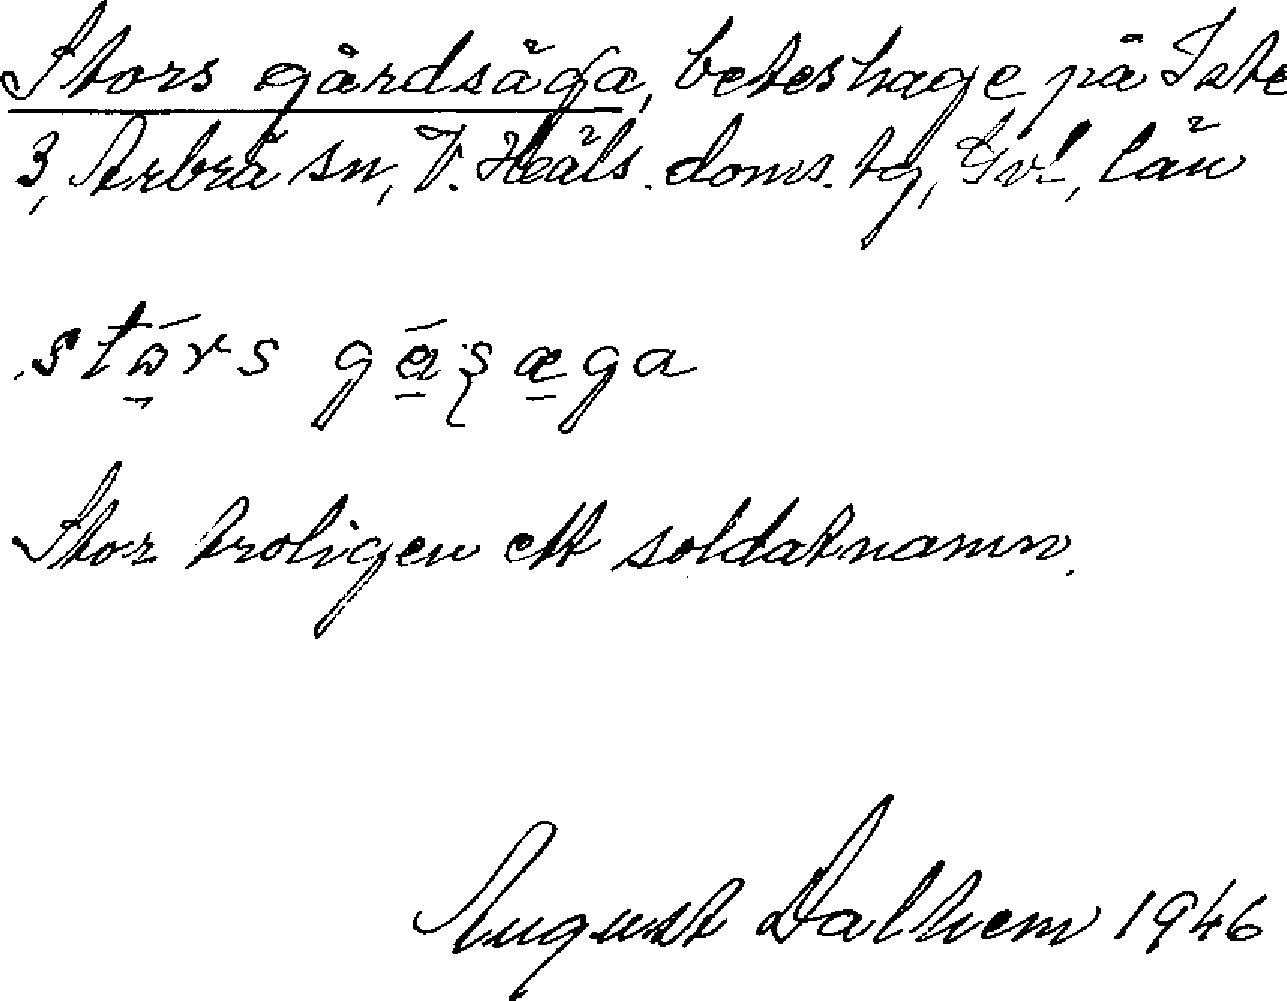 Stors gårdsäga, beteshage på Iste
3, Arbrå sn, V. Häls. doms. tg, Gvl, län
stårs gåsæga
Stor troligen ett soldatnamn.
August Dalhem 1946